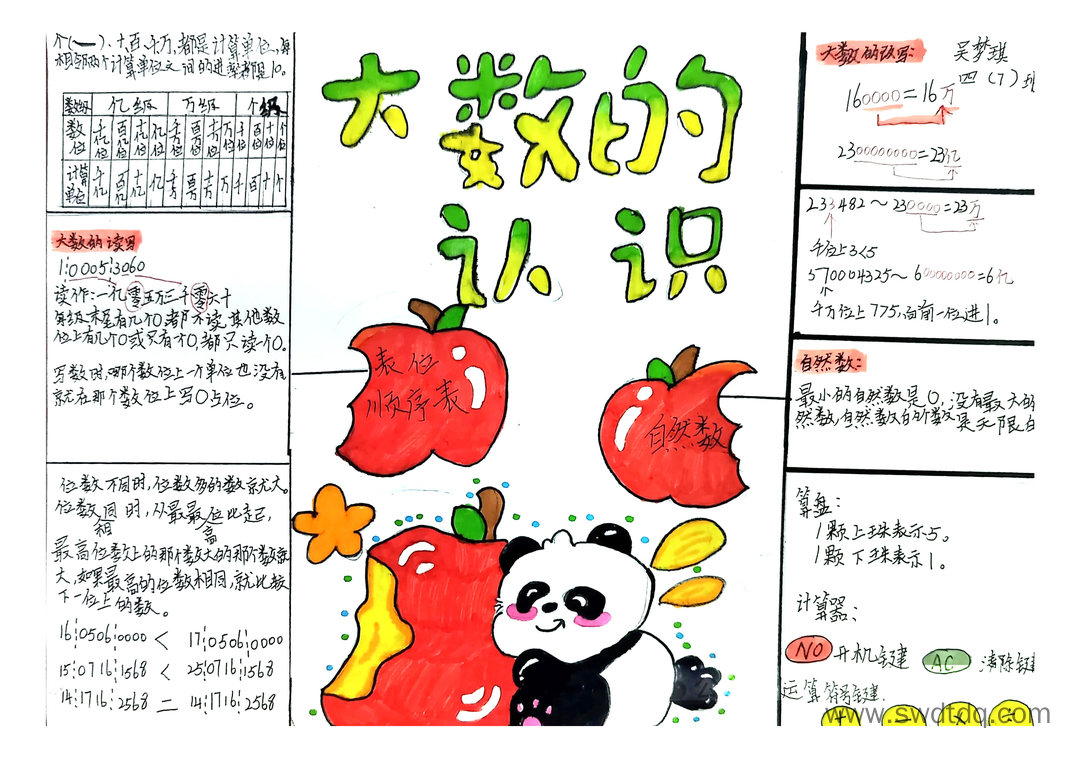 大数的
认识
个(一)、十、百、千、万,都是计算单位,每
相邻两个计算单位之间的进率都是10。
数级 亿级 万级 个级
数位 千亿位 百亿位 十亿位 亿位 千万位 百万位 十万位 万位 千位 百位 十位 个位
计算单位 千亿 百亿 十亿 亿 千万 百万 十万 万 千 百 十 个
大数的读写
1 0005 3060
读作:一亿零五万三千零六十
每级末尾有几个0都不读,其他数
位上有几个0或只有个0,都只读一个0。
写数时,哪个数位上一个单位也没有
就在那个数位上写0占位。
位数不同时,位数多的数就大。
位数同时,从最最位比起,
相 高
最高位数上的那个数大的那个数就
大,如果最高的位数相同,就比较
下一位上的数。
16 0506 0000 < 17 0506 0000
15 0716 1568 < 25 0716 1568
14 1716 2568 = 14 1716 2568
表位
顺序表
自然数
大数的改写:
吴梦琪
四(7)班
160000=16万
2300000000=23亿
233482~230000=23万
千位上3<5
570004325~600000000=6亿
千万位上775,向前一位进1。
自然数:
最小的自然数是0,没有最大的
然数,自然数的个数是无限的
算盘:
1颗上珠表示5。
1颗下珠表示1。
计算器:
NO 开机键 AC 清除键
运算符号键
+ - × ÷
www.swdtdq.com